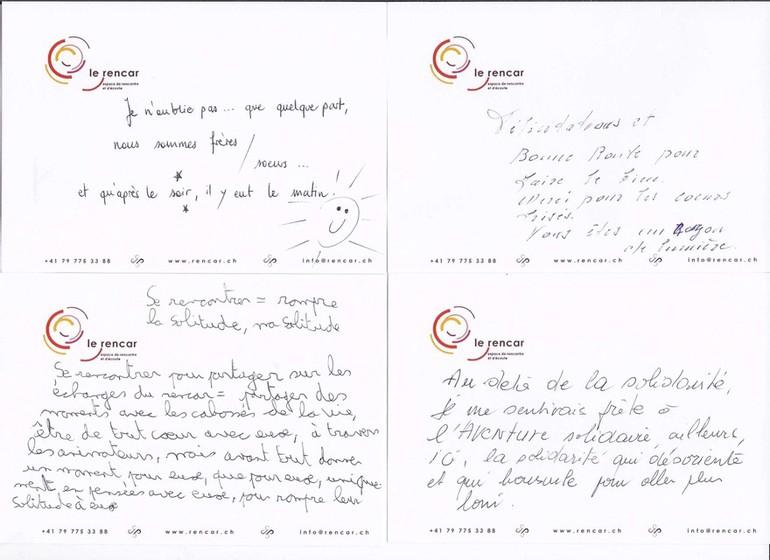 le rencar
espace de rencontre
et d'écoute
Je n'oublie pas ... que quelque part,
nous sommes frères /
soeurs ...
et qu'après le soir, il y eut le matin.
+41 79 775 33 88 www.rencar.ch info@rencar.ch
le rencar
espace de rencontre
et d'écoute
et
Bonne Route pour
faire le bien.
Merci pour les coeurs
brisés.
Vous êtes un Rayon
de lumière.
+41 79 775 33 88 www.rencar.ch info@rencar.ch
Se rencontrer = rompre
la solitude, ma solitude
le rencar
espace de rencontre
et d'écoute
Se rencontrer pour partager sur les
échanges du rencar = partager des
moments avec les cabossés de la vie,
être de tout cœur avec eux, à travers
les animateurs, mais avant tout donner
un moment pour eux, que pour eux, unique-
ment en pensées avec eux, pour rompre leur
solitude à eux
+41 79 775 33 88 www.rencar.ch info@rencar.ch
le rencar
espace de rencontre
et d'écoute
Au delà de la solidarité,
je me sentirais prête à
l'AVENTURE solidaire, ailleurs,
ici, la solidarité qui désoriente
et qui bouscule pour aller plus
loin.
+41 79 775 33 88 www.rencar.ch info@rencar.ch